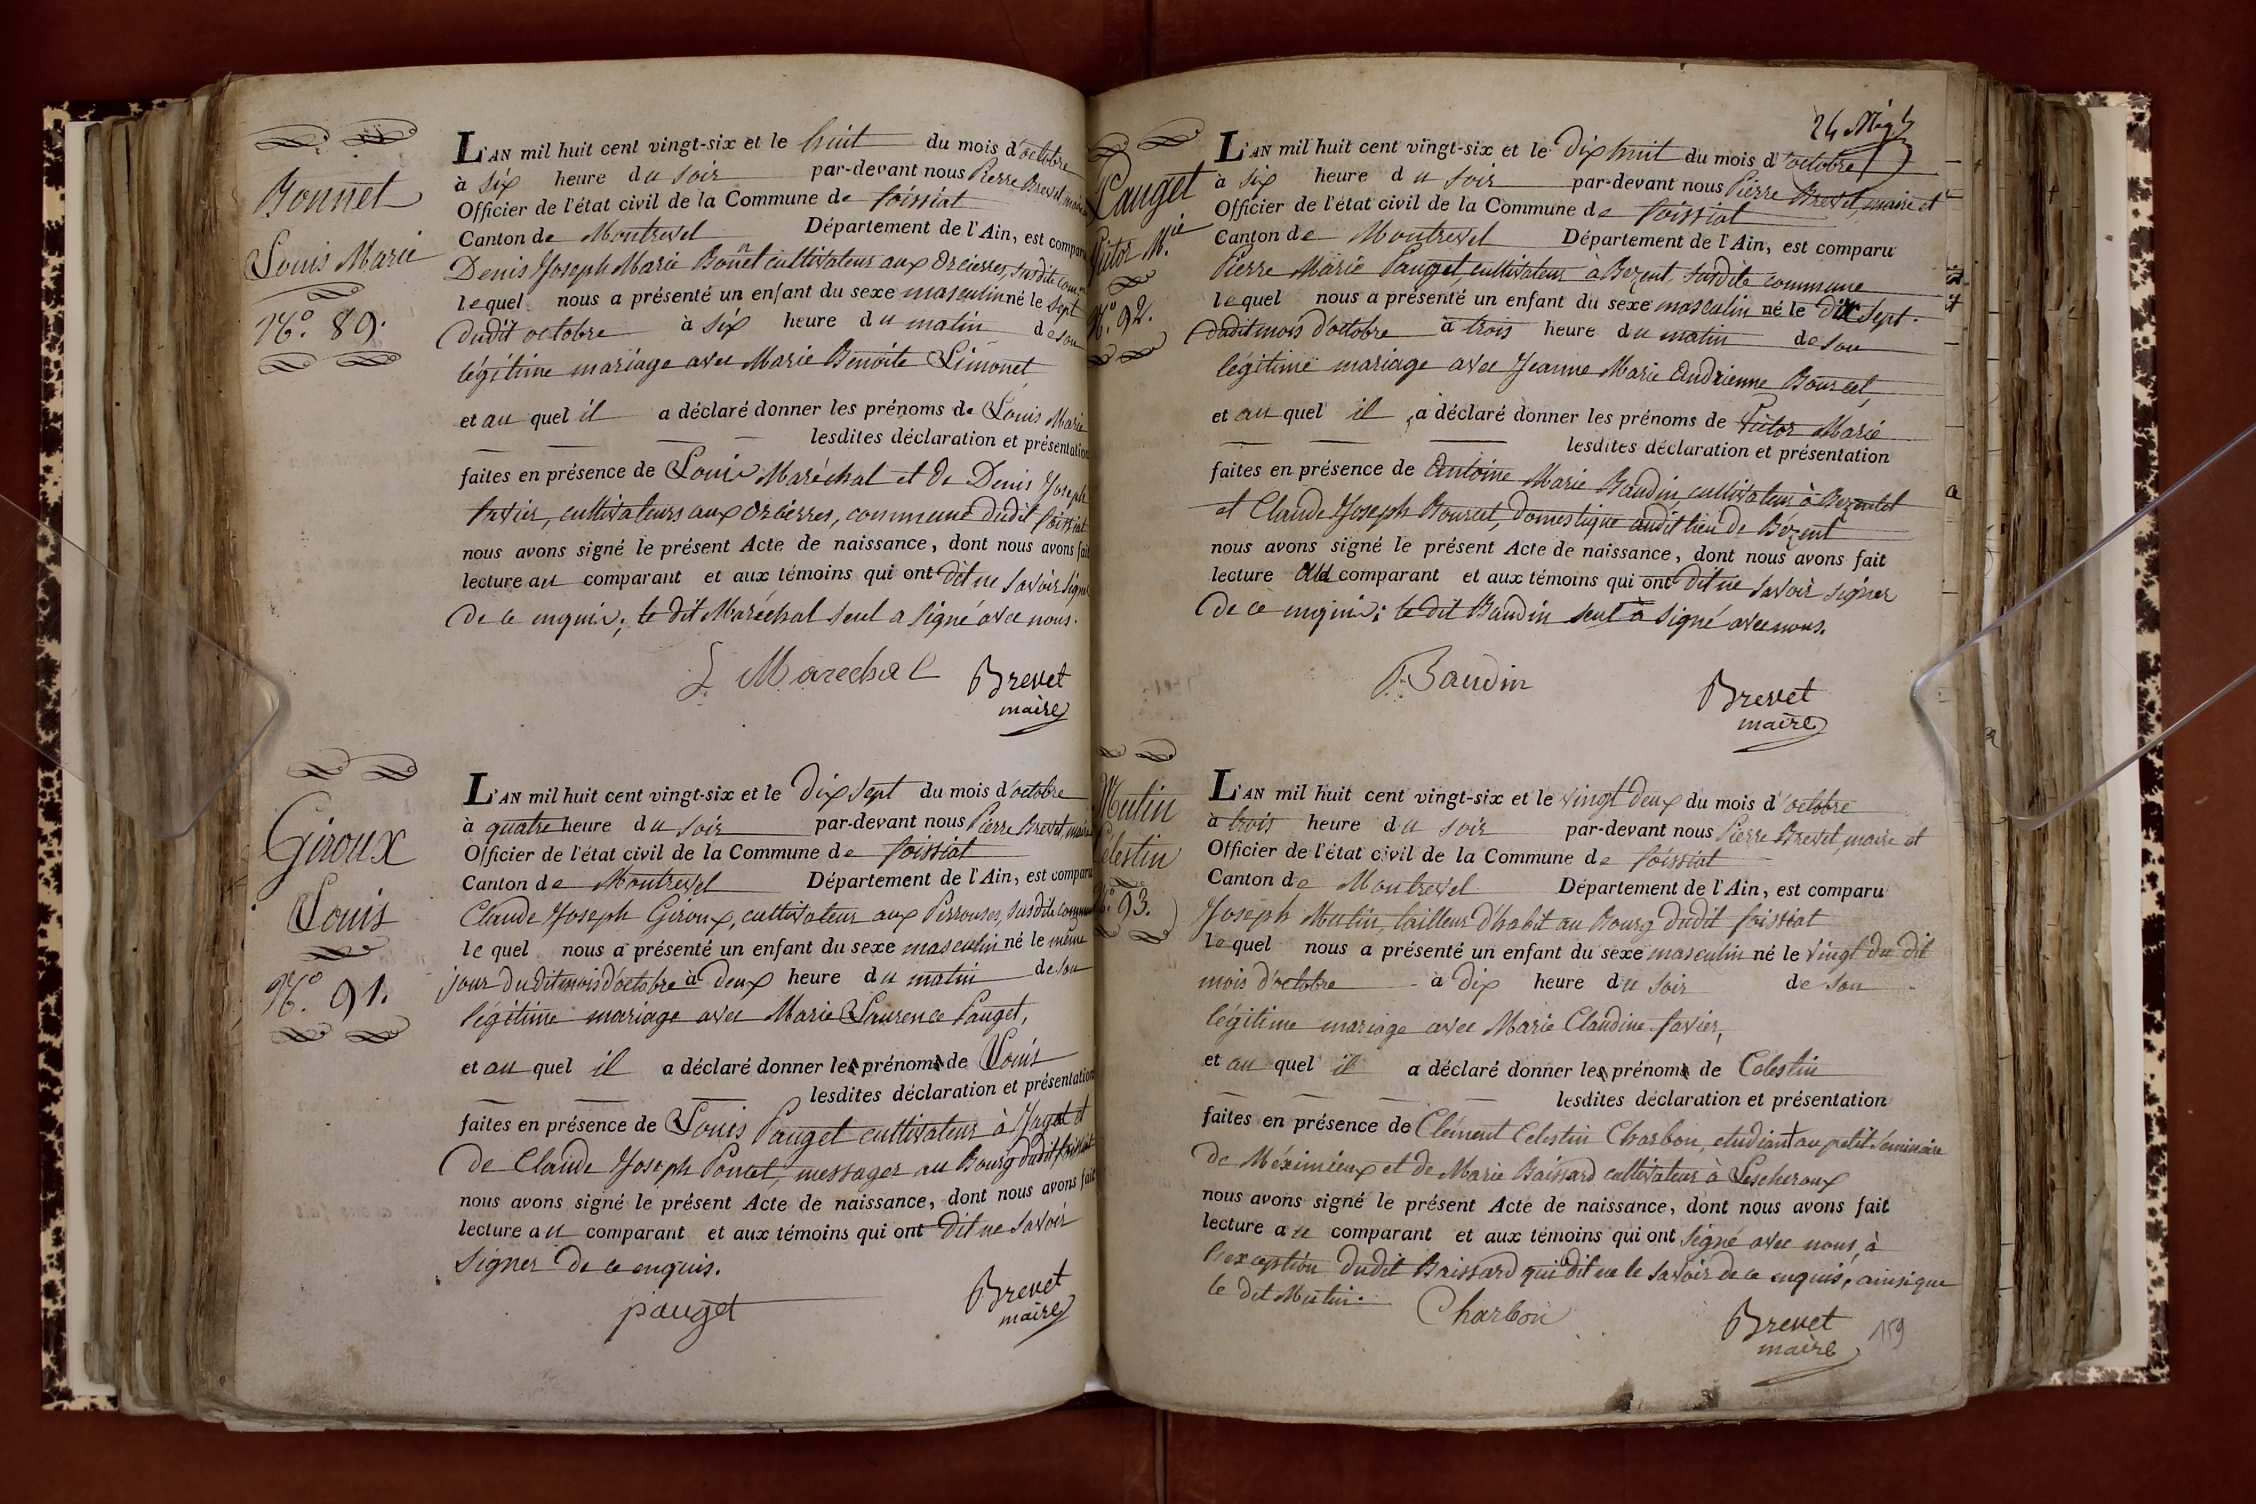 Bonnet
Louis Marie
N.° 89.
L'AN mil huit cent vingt-six et le huit du mois d'octobre
à six heure du soir par-devant nous Pierre Brevet, maire
Officier de l'état civil de la Commune de foissiat
Canton de Montrevel Département de l'Ain, est comparu
Denis Joseph Marie Bonnet cultivateur aux Orcierres, susdite comm
lequel nous a présenté un enfant du sexe masculin né le sept
dudit octobre à six heure du matin de son
légitime mariage avec Marie Benoite Limonet
et au quel il a déclaré donner les prénoms de Louis Marie
lesdites déclaration et présentation
faites en présence de Louis Maréchal et de Denis Joseph
favier, cultivateurs aux Orcierres, commune dudit foissiat
nous avons signé le présent Acte de naissance, dont nous avons fait
lecture au comparant et aux témoins qui ont dit ne savoir signer
de ce enquis; le dit Maréchal seul a signé avec nous.
L. Marechal Brevet
maire
Giroux
Louis
N.° 91.
L'AN mil huit cent vingt-six et le dix sept du mois d'octobre
à quatre heure du soir par-devant nous Pierre Brevet, maire
Officier de l'état civil de la Commune de foissiat
Canton de Montrevel Département de l'Ain, est comparu
Claude Joseph Giroux, cultivateur aux Perrouses, susdite commune
lequel nous a présenté un enfant du sexe masculin né le même
jour du dit mois d'octobre à deux heure du matin de son
légitime mariage avec Marie Laurence Pauget,
et au quel il a déclaré donner les prénoms de Louis
lesdites déclaration et présentation
faites en présence de Louis Pauget cultivateur à et
de Claude Joseph Poncet, messager au Bourg dudit foissiat
nous avons signé le présent Acte de naissance, dont nous avons fait
lecture au comparant et aux témoins qui ont dit ne savoir
signer de ce enquis.
pauget Brevet
maire
Pauget
Victor M.ie
N.° 92.
L'AN mil huit cent vingt-six et le dix huit du mois d'octobre
à six heure du soir par-devant nous Pierre Brevet, maire et
Officier de l'état civil de la Commune de foissiat
Canton de Montrevel Département de l'Ain, est comparu
Pierre Marie Pauget, cultivateur à Bezent, susdite commune
lequel nous a présenté un enfant du sexe masculin né le dix sept
dudit mois d'octobre à trois heure du matin de son
légitime mariage avec Jeanne Marie Andrienne Bourcet,
et au quel il a déclaré donner les prénoms de Victor Marie
lesdites déclaration et présentation
faites en présence de Antoine Marie Baudin, cultivateur à
et Claude Joseph Bourcet, domestique audit lieu de Bézent
nous avons signé le présent Acte de naissance, dont nous avons fait
lecture au comparant et aux témoins qui ont dit ne savoir signer
de ce enquis; le dit Baudin seul a signé avec nous.
Baudin Brevet
maire
Mutin
Celestin
N.° 93.
L'AN mil huit cent vingt-six et le vingt deux du mois d'octobre
à trois heure du soir par-devant nous Pierre Brevet, maire et
Officier de l'état civil de la Commune de foissiat
Canton de Montrevel Département de l'Ain, est comparu
Joseph Mutin, tailleur d'habit au Bourg dudit foissiat
lequel nous a présenté un enfant du sexe masculin né le vingt du dit
mois d'octobre à dix heure du soir de son
légitime mariage avec Marie Claudine favier,
et au quel il a déclaré donner les prénoms de Celestin
lesdites déclaration et présentation
faites en présence de Clément Celestin Charbon, etudiant au petit séminaire
de Méximieux et de Marie Baissard cultivateur à Lescheroux
nous avons signé le présent Acte de naissance, dont nous avons fait
lecture au comparant et aux témoins qui ont signé avec nous, à
l'exception dudit Baissard qui a dit ne le savoir de ce enquis, ainsi que
le dit Mutin.
Charbon Brevet
maire
159